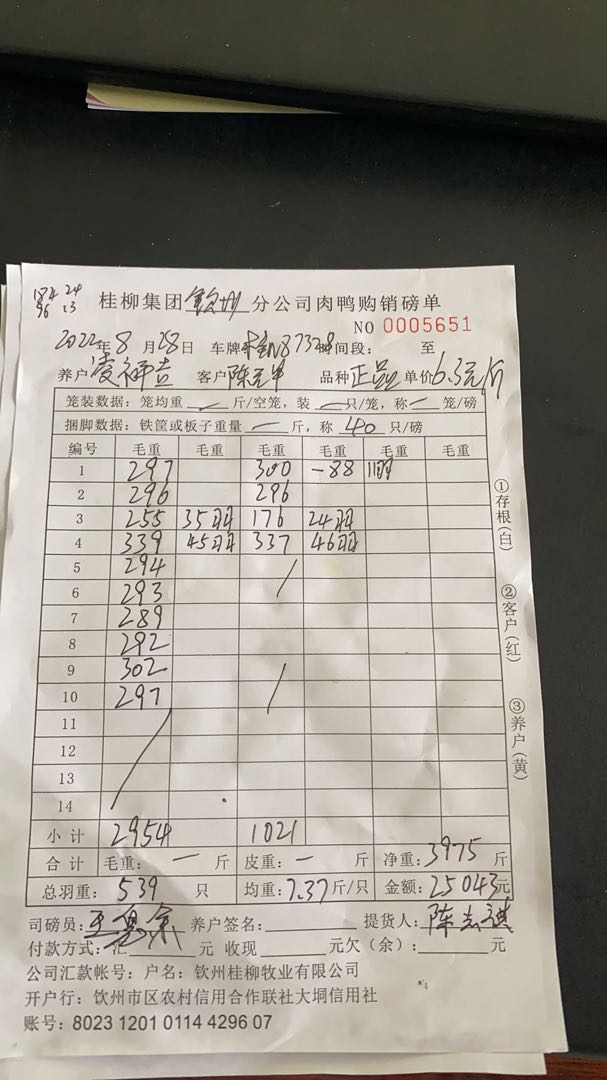 184 24
96 13
桂柳集团钦州分公司肉鸭购销磅单
NO 0005651
2022年8月28日 车牌 N87328 时间段: 至
养户 凌祥吉 客户 陈 品种 正品 单价 6.3元/斤
笼装数据: 笼均重 斤/空笼, 装 只/笼, 称 笼/磅
捆脚数据: 铁筐或板子重量 一 斤, 称 40 只/磅
编号 毛重 毛重 毛重 毛重 毛重 毛重
1 297 300 -88 11羽
2 296 296
3 255 35羽 176 24羽
4 339 45羽 337 46羽
5 294
6 293
7 289
8 292
9 302
10 297
11
12
13
14
小计 2954 1021
合计 毛重: 一 斤 皮重: 一 斤 净重: 3975 斤
总羽重: 539 只 均重: 7.37 斤/只 金额: 25043元
司磅员: 王 养户签名: 提货人: 陈志
付款方式: 汇 元 收现 元欠(余): 元
公司汇款帐号: 户名: 钦州桂柳牧业有限公司
开户行: 钦州市区农村信用合作联社大垌信用社
账号: 8023 1201 0114 4296 07
①存根(白)
②客户(红)
③养户(黄)